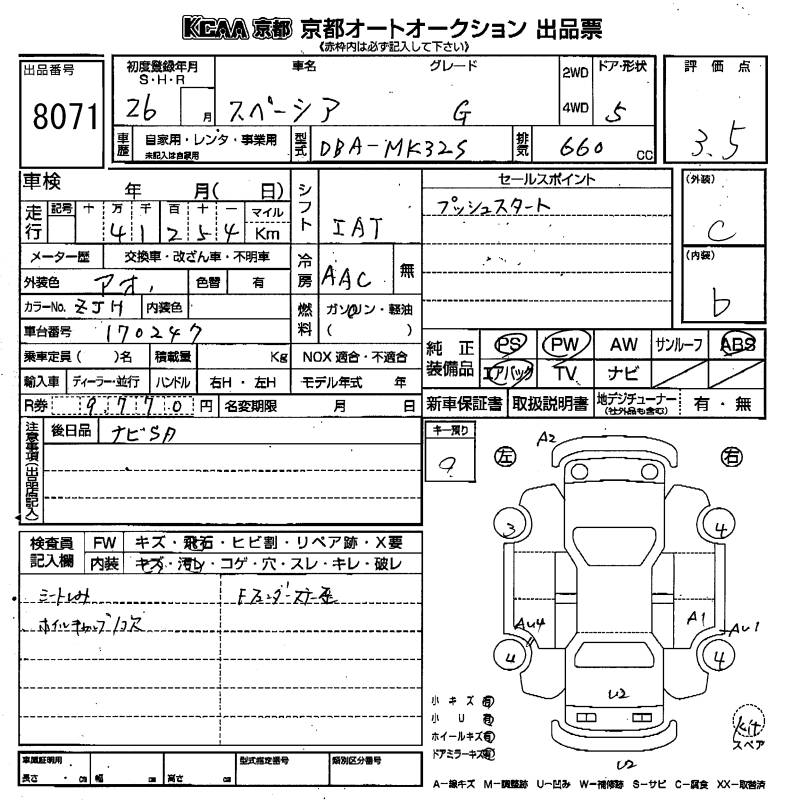 KCAA 京都 京都オートオークション 出品票
《赤枠内は必ず記入して下さい》
出品番号 8071
初度登録年月 S・H・R 26 月
車名 スペーシア
グレード G
2WD 4WD
ドア・形状 5
評価点 3.5
車歴 自家用・レンタ・事業用 未記入は自家用
型式 DBA-MK32S
排気 660 CC
車検 年 月( 日)
走行 記号 十 万 千 百 十 一 マイル Km 4 1 2 5 4
シフト IAT
セールスポイント
プッシュスタート
(外装) C
(内装) b
メーター歴 交換車・改ざん車・不明車
冷房 AAC 無
外装色 アオ 色替 有
カラーNo. ZJH 内装色
燃料 ガソリン・軽油 ( )
車台番号 170247
乗車定員( )名 積載量 Kg NOX 適合・不適合
輸入車 ディーラー・並行 ハンドル 右H・左H モデル年式 年
純正装備品 PS PW AW サンルーフ ABS
エアバッグ TV ナビ
R券 9770 円 名変期限 月 日
新車保証書 取扱説明書 地デジチューナー (社外品も含む) 有・無
注意事項(出品店記入)
後日品 ナビSD
キー残り 9
左 右
A2
3 4
AU4 A1 AU1
4 4
U2
U2
検査員記入欄 FW キズ・飛石・ヒビ割・リペア跡・X要
内装 キズ・汚レ・コゲ・穴・スレ・キレ・破レ
シートしみ
ホイルキャップ1コ欠
小キズ 有
小U 有
ホイールキズ 有
ドアミラーキズ 有
kit
スペア
車庫証明用 長さ ・ cm 幅 cm 高さ cm
型式指定番号 類別区分番号
A-線キズ M-調整跡 U-凹み W-補修跡 S-サビ C-腐食 XX-取替済